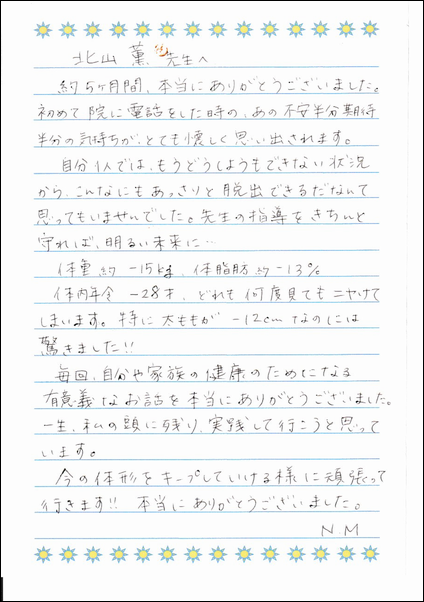 北山 薫 先生へ
約5ヶ月間、本当にありがとうございました。
初めて院に電話をした時の、あの不安半分期待
半分の気持ちが、とても懐しく思い出されます。
自分1人では、もうどうしようもできない状況
から、こんなにもあっさりと脱出できるだなんて
思ってもいませんでした。先生の指導をきちんと
守れば、明るい未来に…
体重 約 -15kg、体脂肪 約 -13%
体内年令 -28才、どれも何度見てもニヤけて
しまいます。特に太ももが -12cmなのには
驚きました!!
毎回、自分や家族の健康のためになる
有意義なお話を本当にありがとうございました。
一生、私の頭に残り、実践して行こうと思って
います。
今の体形をキープしていける様に頑張って
行きます!! 本当にありがとうございました。
N M